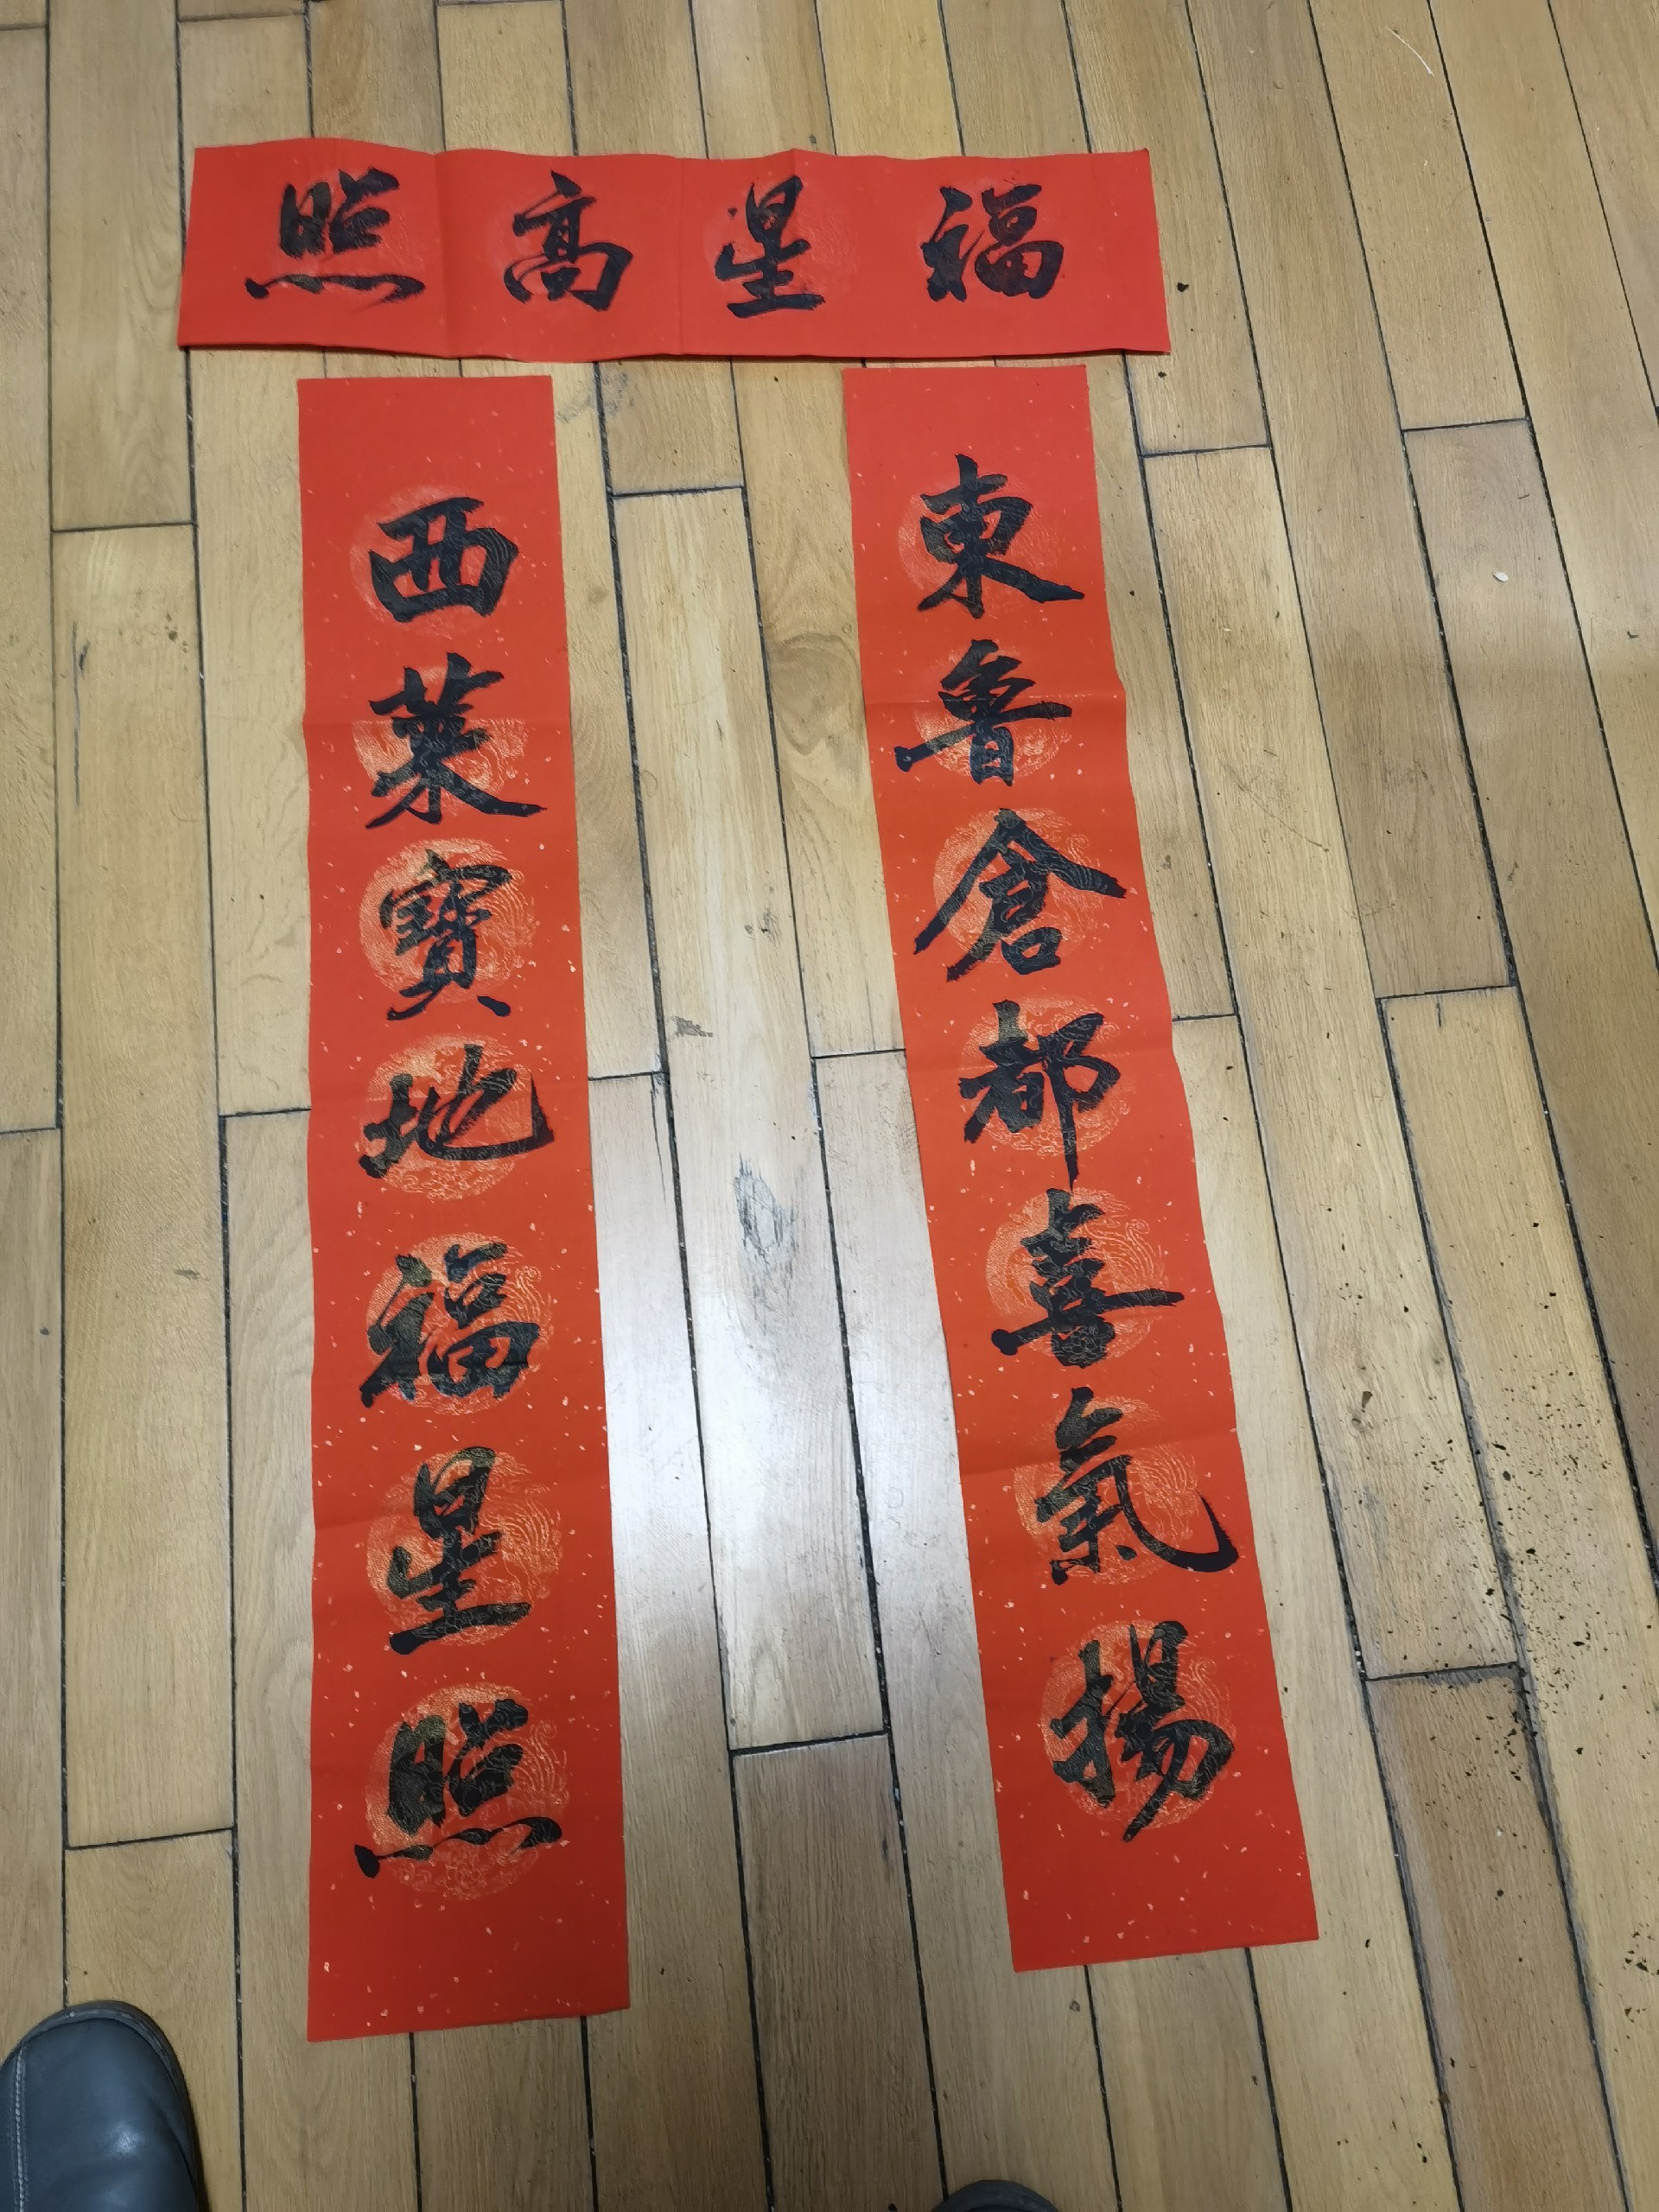 福星高照
東魯倉都喜氣揚
西萊寶地福星照